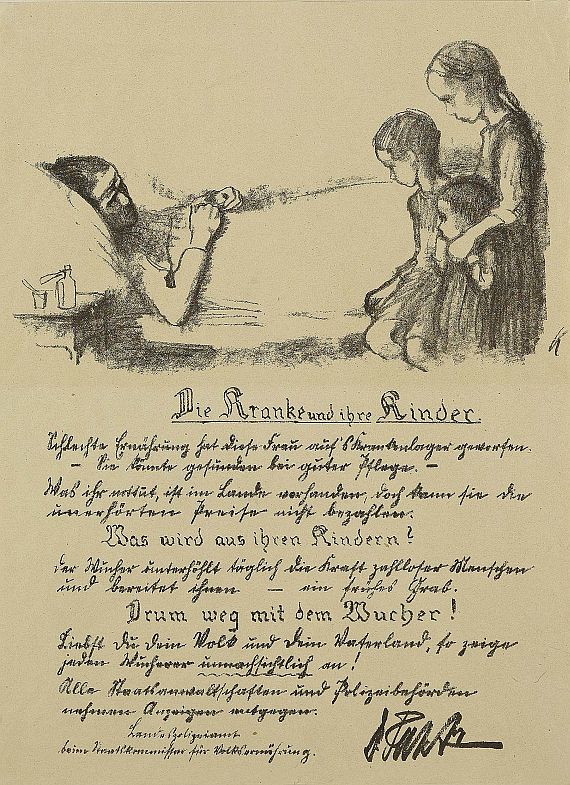 Die Kranke und ihre Kinder.
Schlechte Ernährung hat diese Frau auf's Krankenlager geworfen.
— Sie könnte gesunden bei guter Pflege. —
Was ihr nottut, ist im Lande vorhanden, doch kann sie die
unerhörten Preise nicht bezahlen.
Was wird aus ihren Kindern?
Der Wucher unterhöhlt täglich die Kraft zahlloser Menschen
und bereitet ihnen — ein frühes Grab.
Drum weg mit dem Wucher!
Liebst Du Dein Volk und Dein Vaterland, so zeige
jeden Wucherer unnachsichtlich an!
Alle Staatsanwaltschaften und Polizeibehörden
nehmen Anzeigen entgegen.
Landespolizeiamt
beim Staatskommissar für Volksernährung.